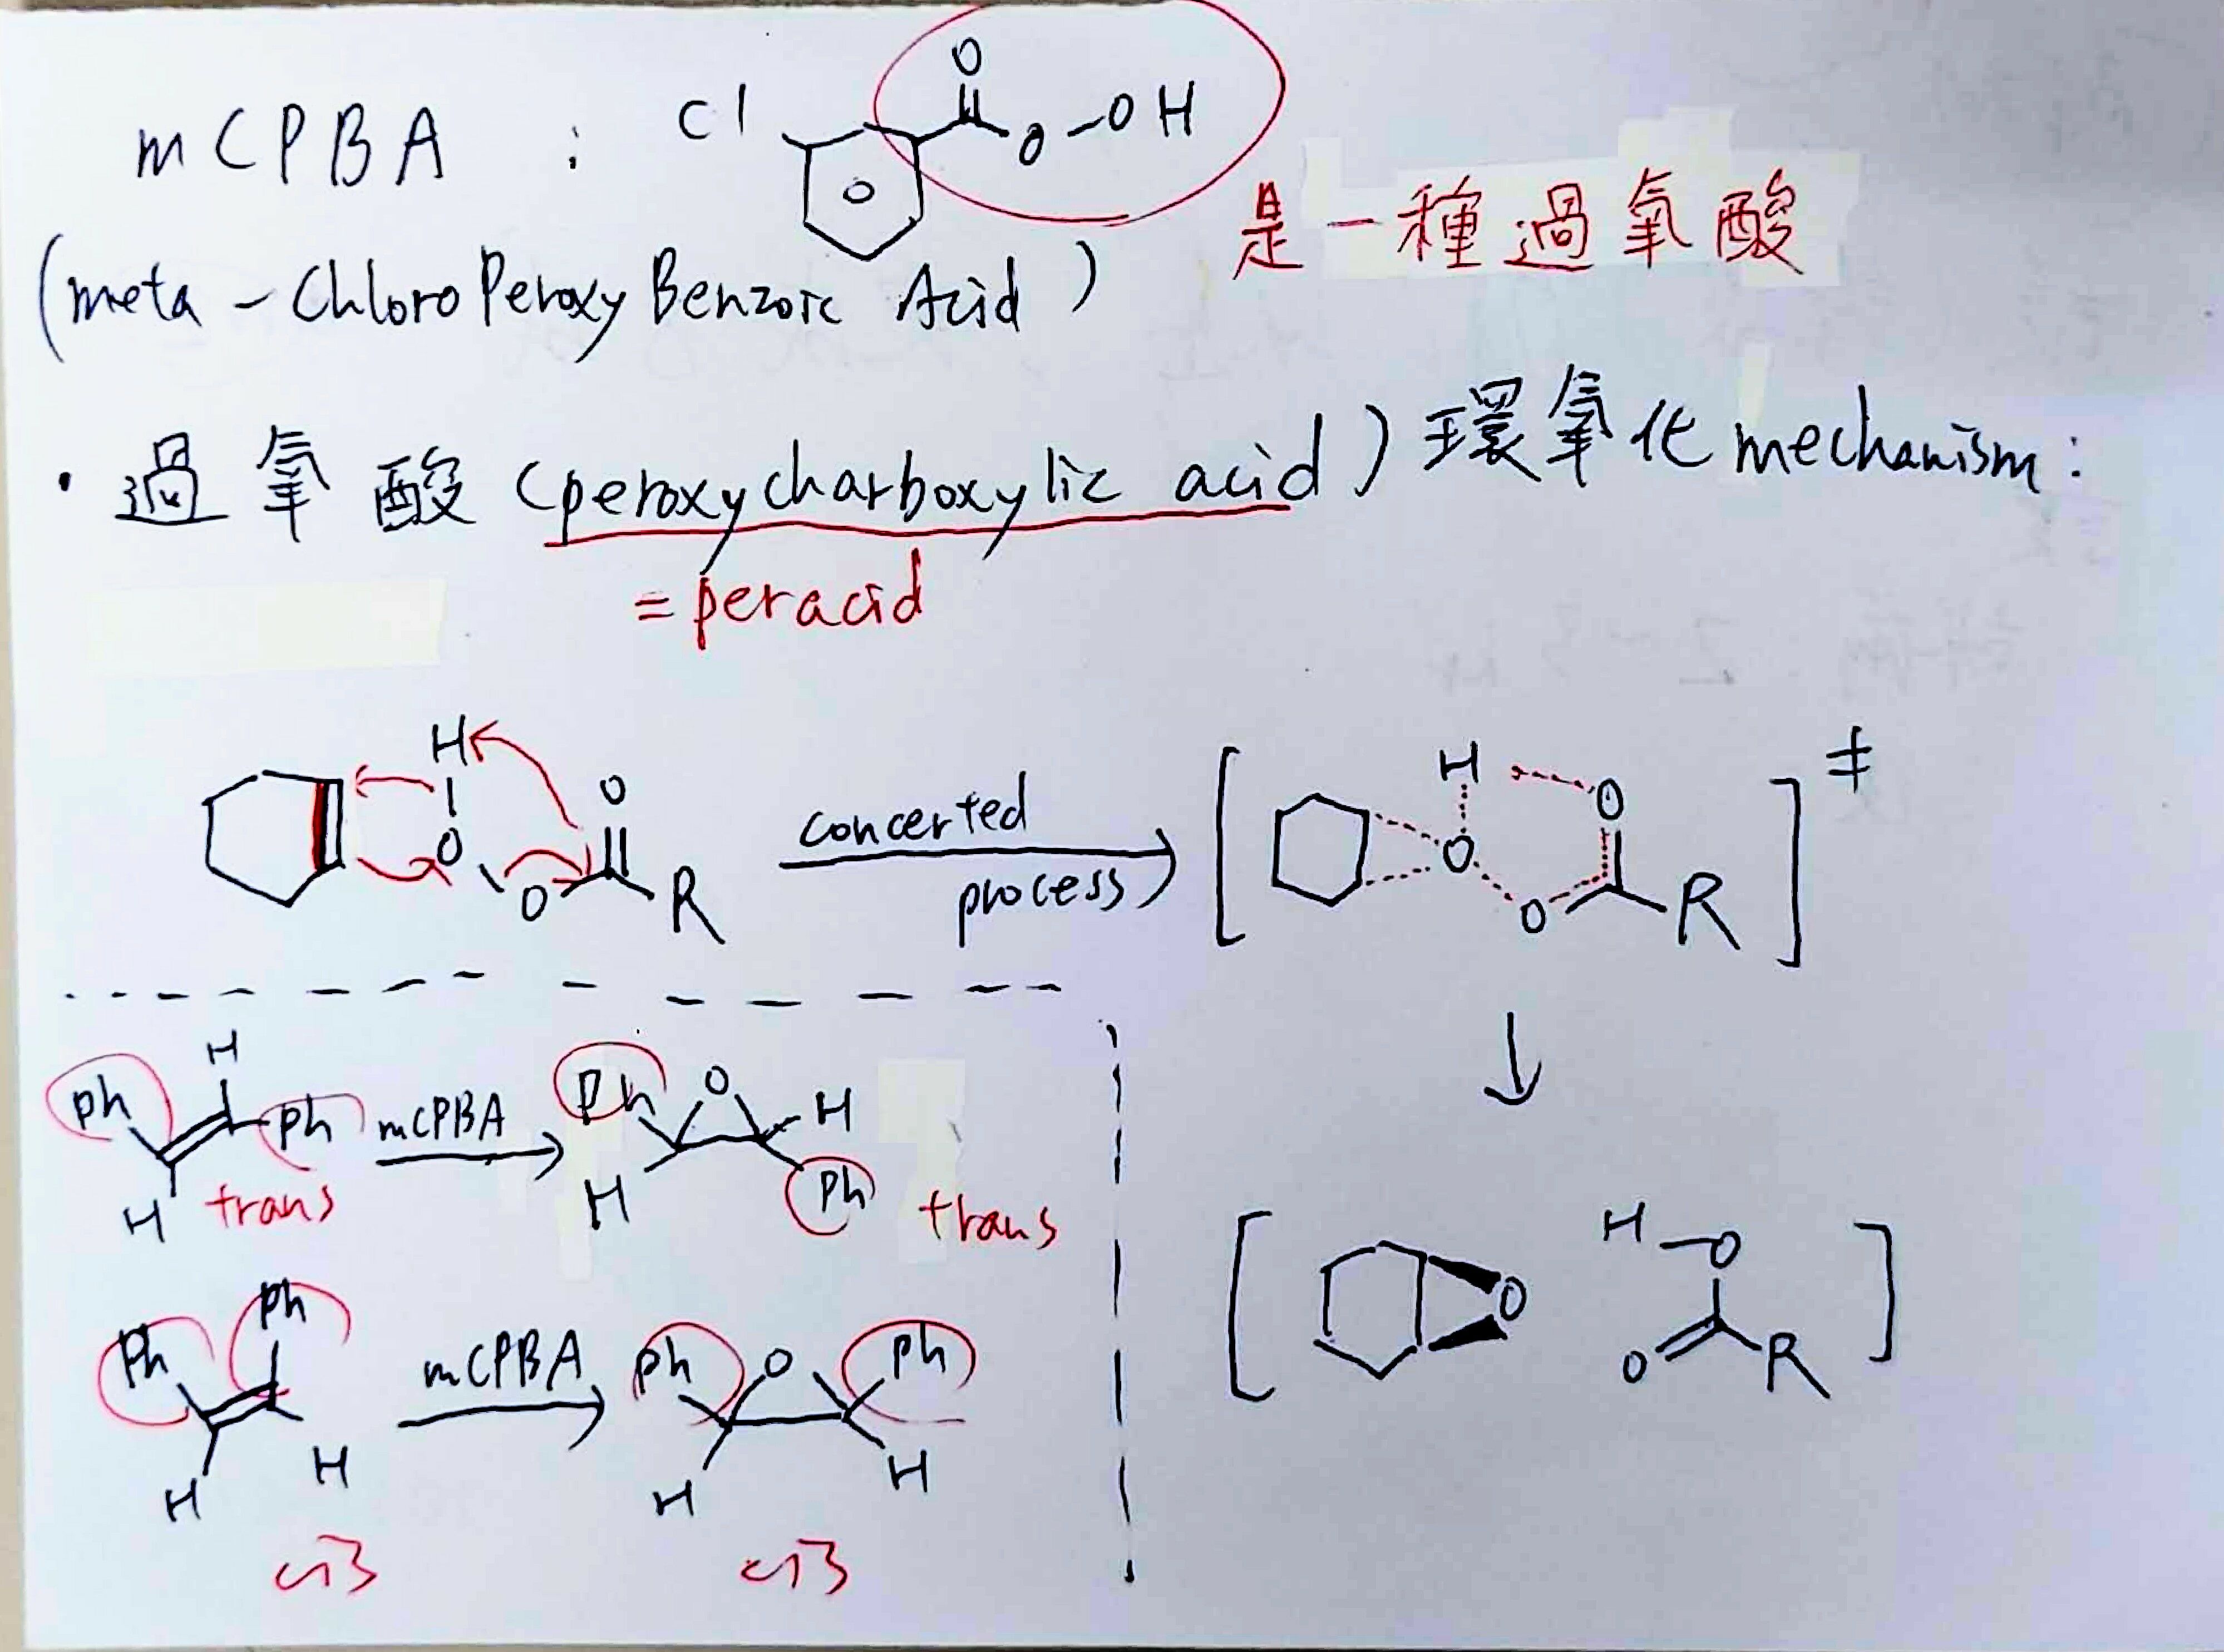 mCPBA : Cl O O-OH
是一種過氧酸
(meta-ChloroPeroxyBenzoic Acid)
・過氧酸 (peroxycharboxylic acid) 環氧化 mechanism:
= peracid
H O O O R
concerted
process
[ H O O O R ]‡
Ph H Ph H trans
mCPBA
Ph O H H Ph trans
[ O H O O R ]
Ph Ph H H
mCPBA
Ph O Ph H H
cis
cis